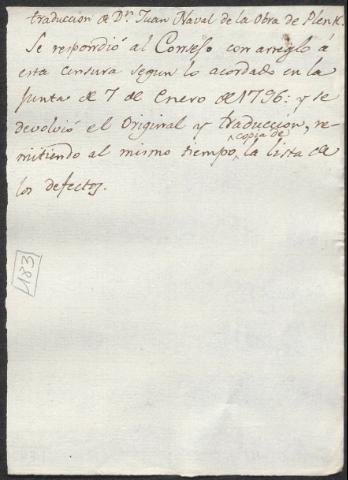 traduccion de Dn. Juan Naval de la Obra de Plenk
Se respondió al Consejo con arreglo á
esta censura segun lo acordado en la
Junta de 7 de Enero de 1796: y se
devolvió el Original y traduccion, re-
mitiendo al mismo tiempo, copia de la lista de
los defectos.
1183